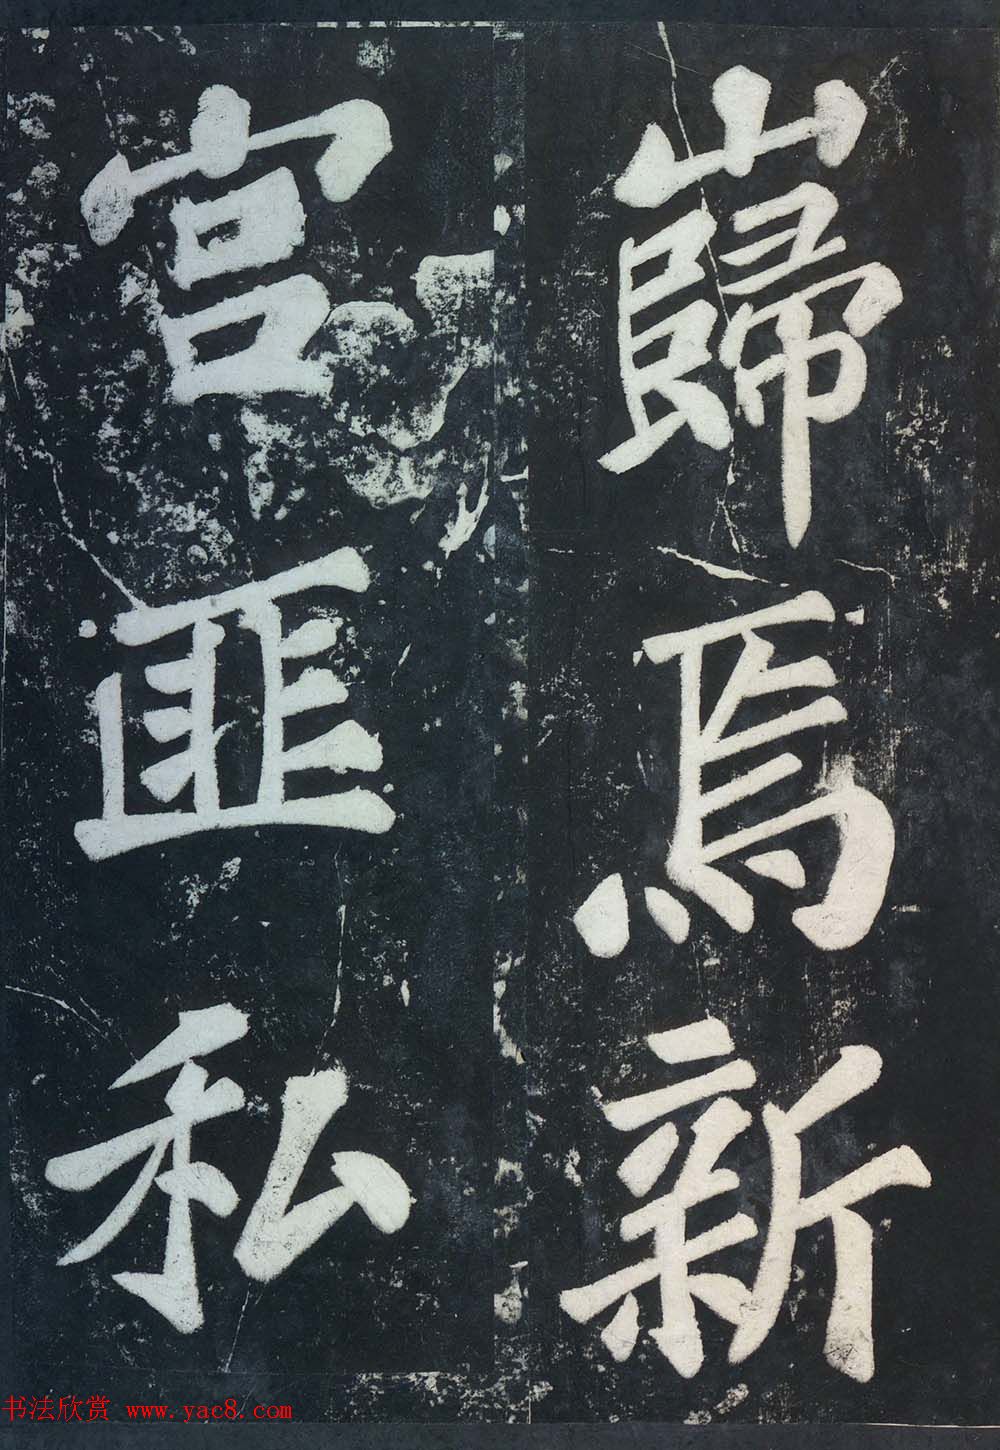 巋焉新
宮匪私
书法欣赏 www.yac8.com